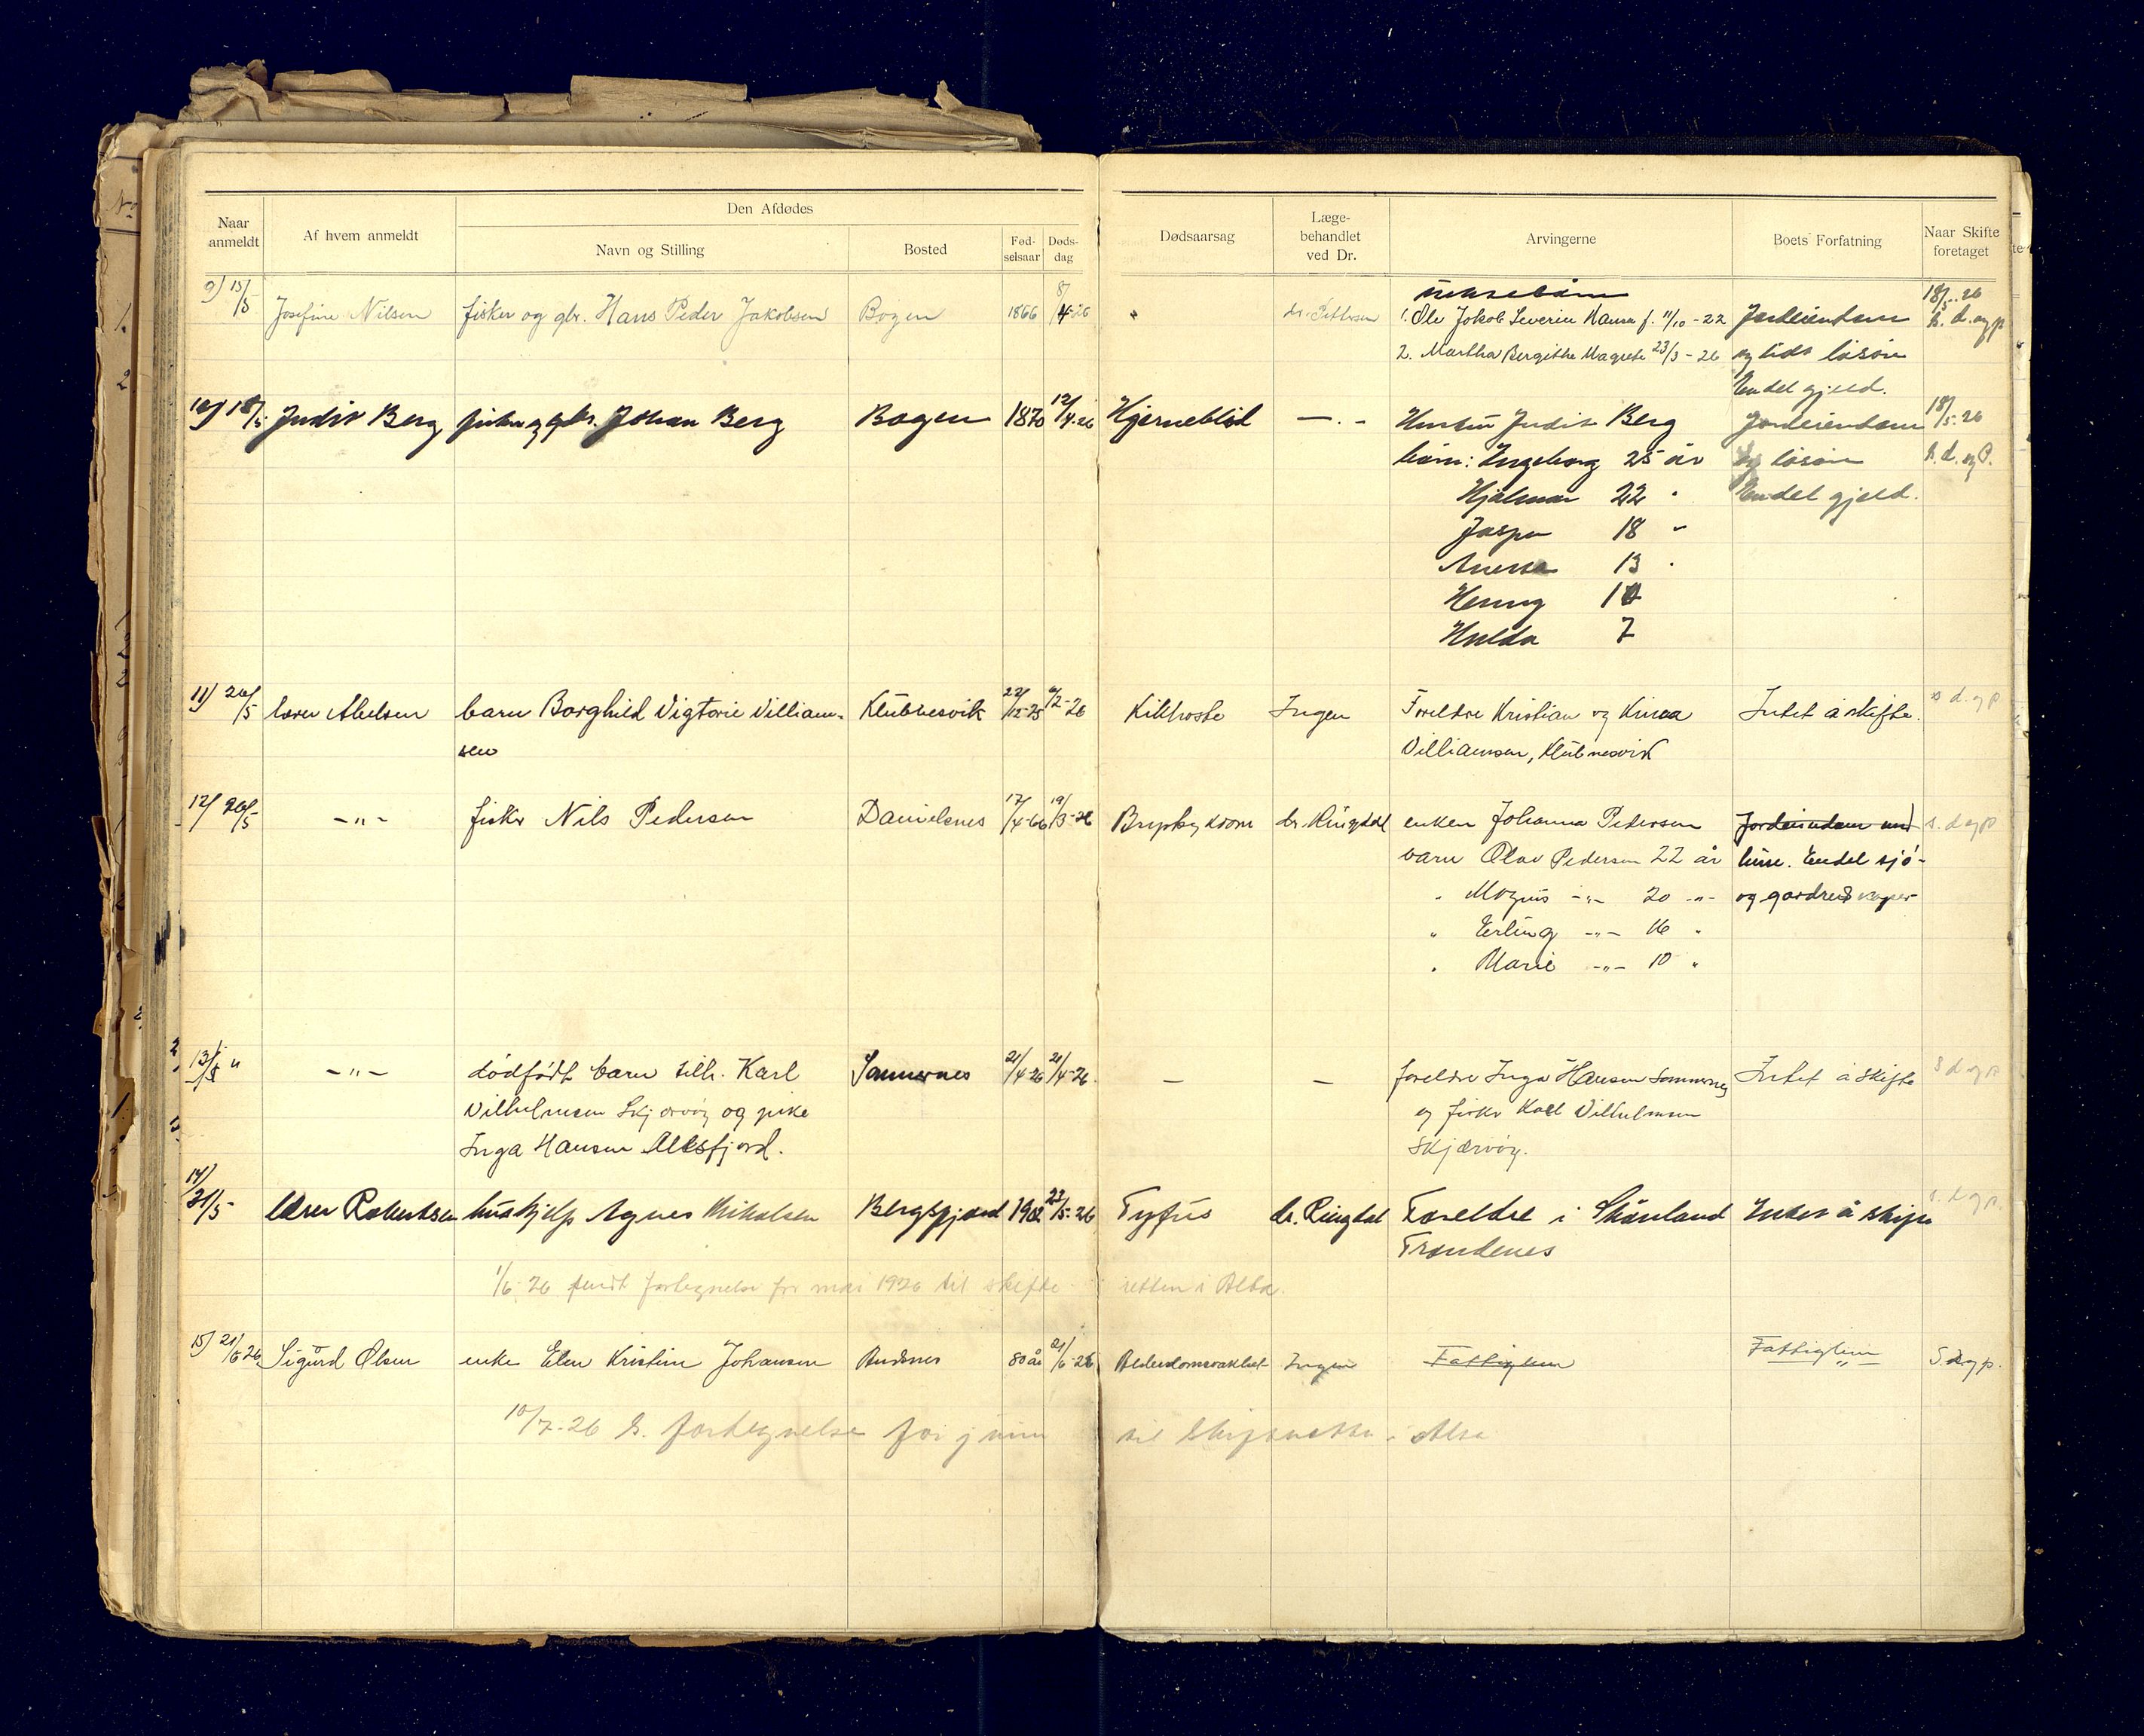 Naar anmeldt
Af hvem anmeldt
Den Afdødes
Navn og Stilling
Bosted
Fød-selsaar
Døds-dag
Dødsaarsag
Læge-behandlet ved Dr.
Arvingerne
Boets Forfatning
Naar Skifte foretaget
9) 15/5 Josefine Nilsen fisker og gbr. Hans Peder Jakobsen Bogen 1866 8/4-26 " dr. Pettersen
1. Ole Jokob Severin Hansen f. 11/10-22 Jordeiendom 18/5-26
2. Martha Bergithe Magrete 23/3-26 og lidt løsøre s. d. og p
Endel gjeld.
10) 18/5 Judit Berg fisker og gbr. Johan Berg Bogen 1870 12/4-26 Hjerneblød — . - Hustru Judit Berg Jordeiendom 18/5-26
barn: Ingeborg 25 år og løsøre s. d. og P.
Hjalmar 22 " Endel gjeld.
Jasper 18 "
13 "
Henny 10
Hulda 7
11) 20/5 lærer Abelsen barn Borghild Vigtorie William- Klubnesvik 22/12-25 2-26 Kikhoste Ingen Foreldre Kristian og Intet å skifte. s d. og p
sen Villiamsen, Klubnesvik
12) 20/5 -"- fisker Nils Pedersen Danielsnes 17/4-66 19/3-26 Brystsykdom dr. Ringdal enken Johanna Pedersen Jordeiendom med s. d og p
barn Olav Pedersen 22 år huse. Endel sjø-
" Magnus -"- 20 -"- og gardredskaper
" Erling -"- 16 "
" Marie -"- 10 "
13) " -"- dødfødt barn till. Karl Sannernes 21/4-26 21/4-26 — — foreldre Inga Hansen Intet å skifte s d og p
Vilhelmsen Skjærvøy og pike og fisker Karl Vilhelmsen
Inga Hansen Alksfjord. Skjærvøy.
14) 31/5 lærer Robertsen hushjelp Agnes Mikalsen Bergsfjord 1902 22/5-26 Tyfus dr. Ringdal Foreldre i Skånland Intet å skifte s. d og p.
Trondenes
1/6-26 sendt fortegnelse for mai 1926 til skifte- retten i Alta.
15) 21/6 26 Sigurd Olsen enke Elen Kristine Johansen Andsnes 80 år 21/6-26 Alderdomssvakhet Ingen Fattiglem Fattiglem S. d og p.
"
10/7-26 s. fortegnelse for juni til skifteretten i Alta